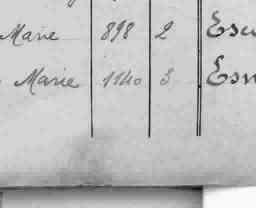 Marie 898 2 Esc
Marie 1140 3 Esn